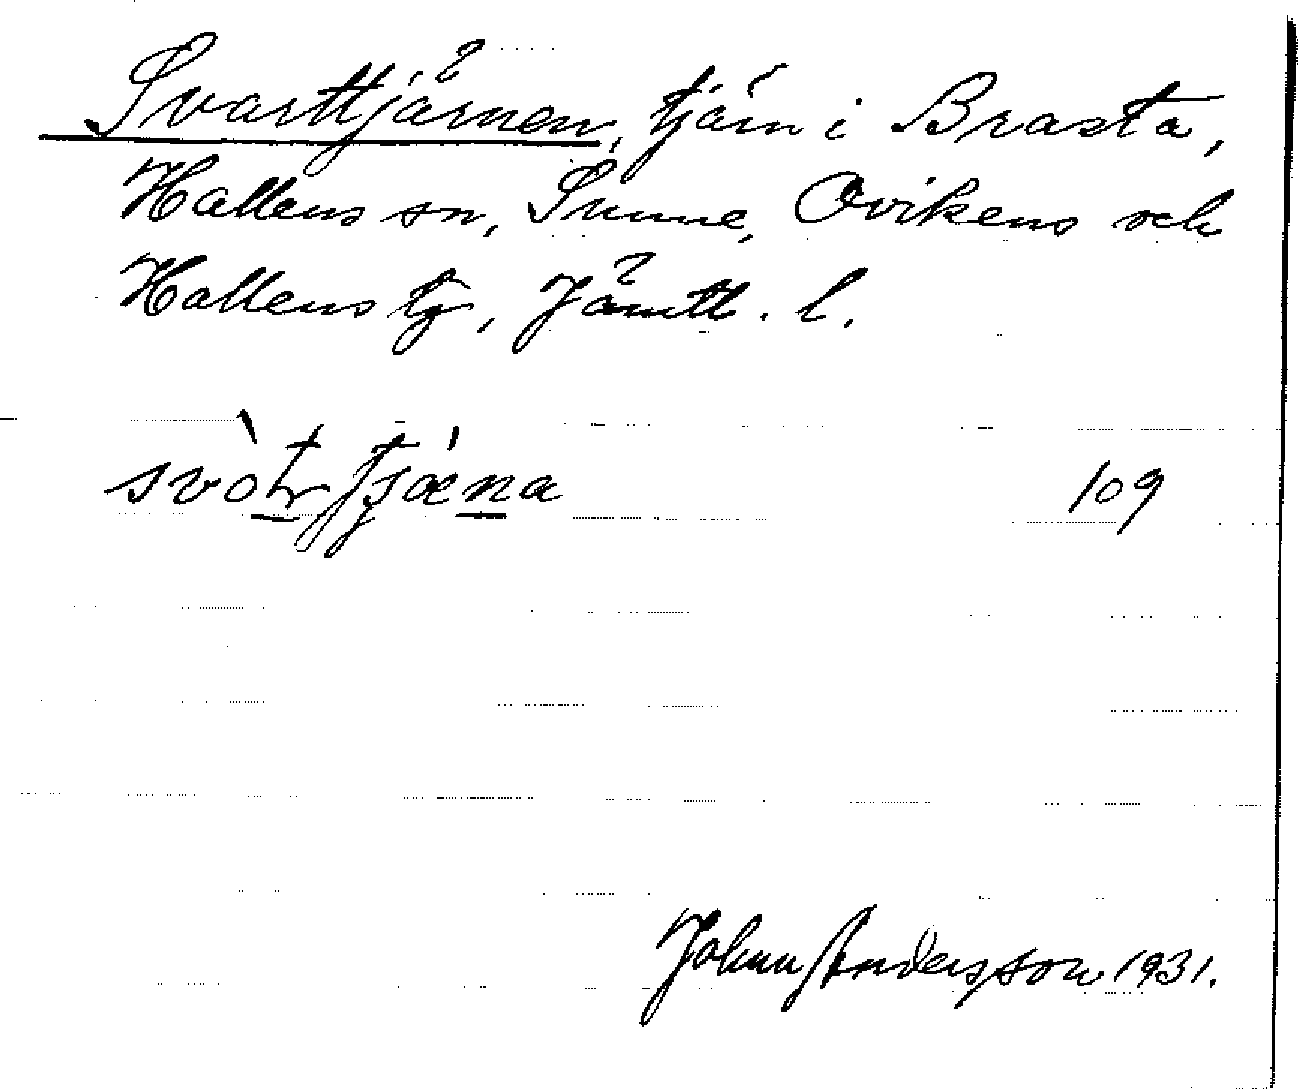 Svarttjärnen, tjärn i Brasta,
Hallens sn, Sunne, Ovikens och
Hallens tg, Jämtl. l.
109
Johnny Andersson 1931.